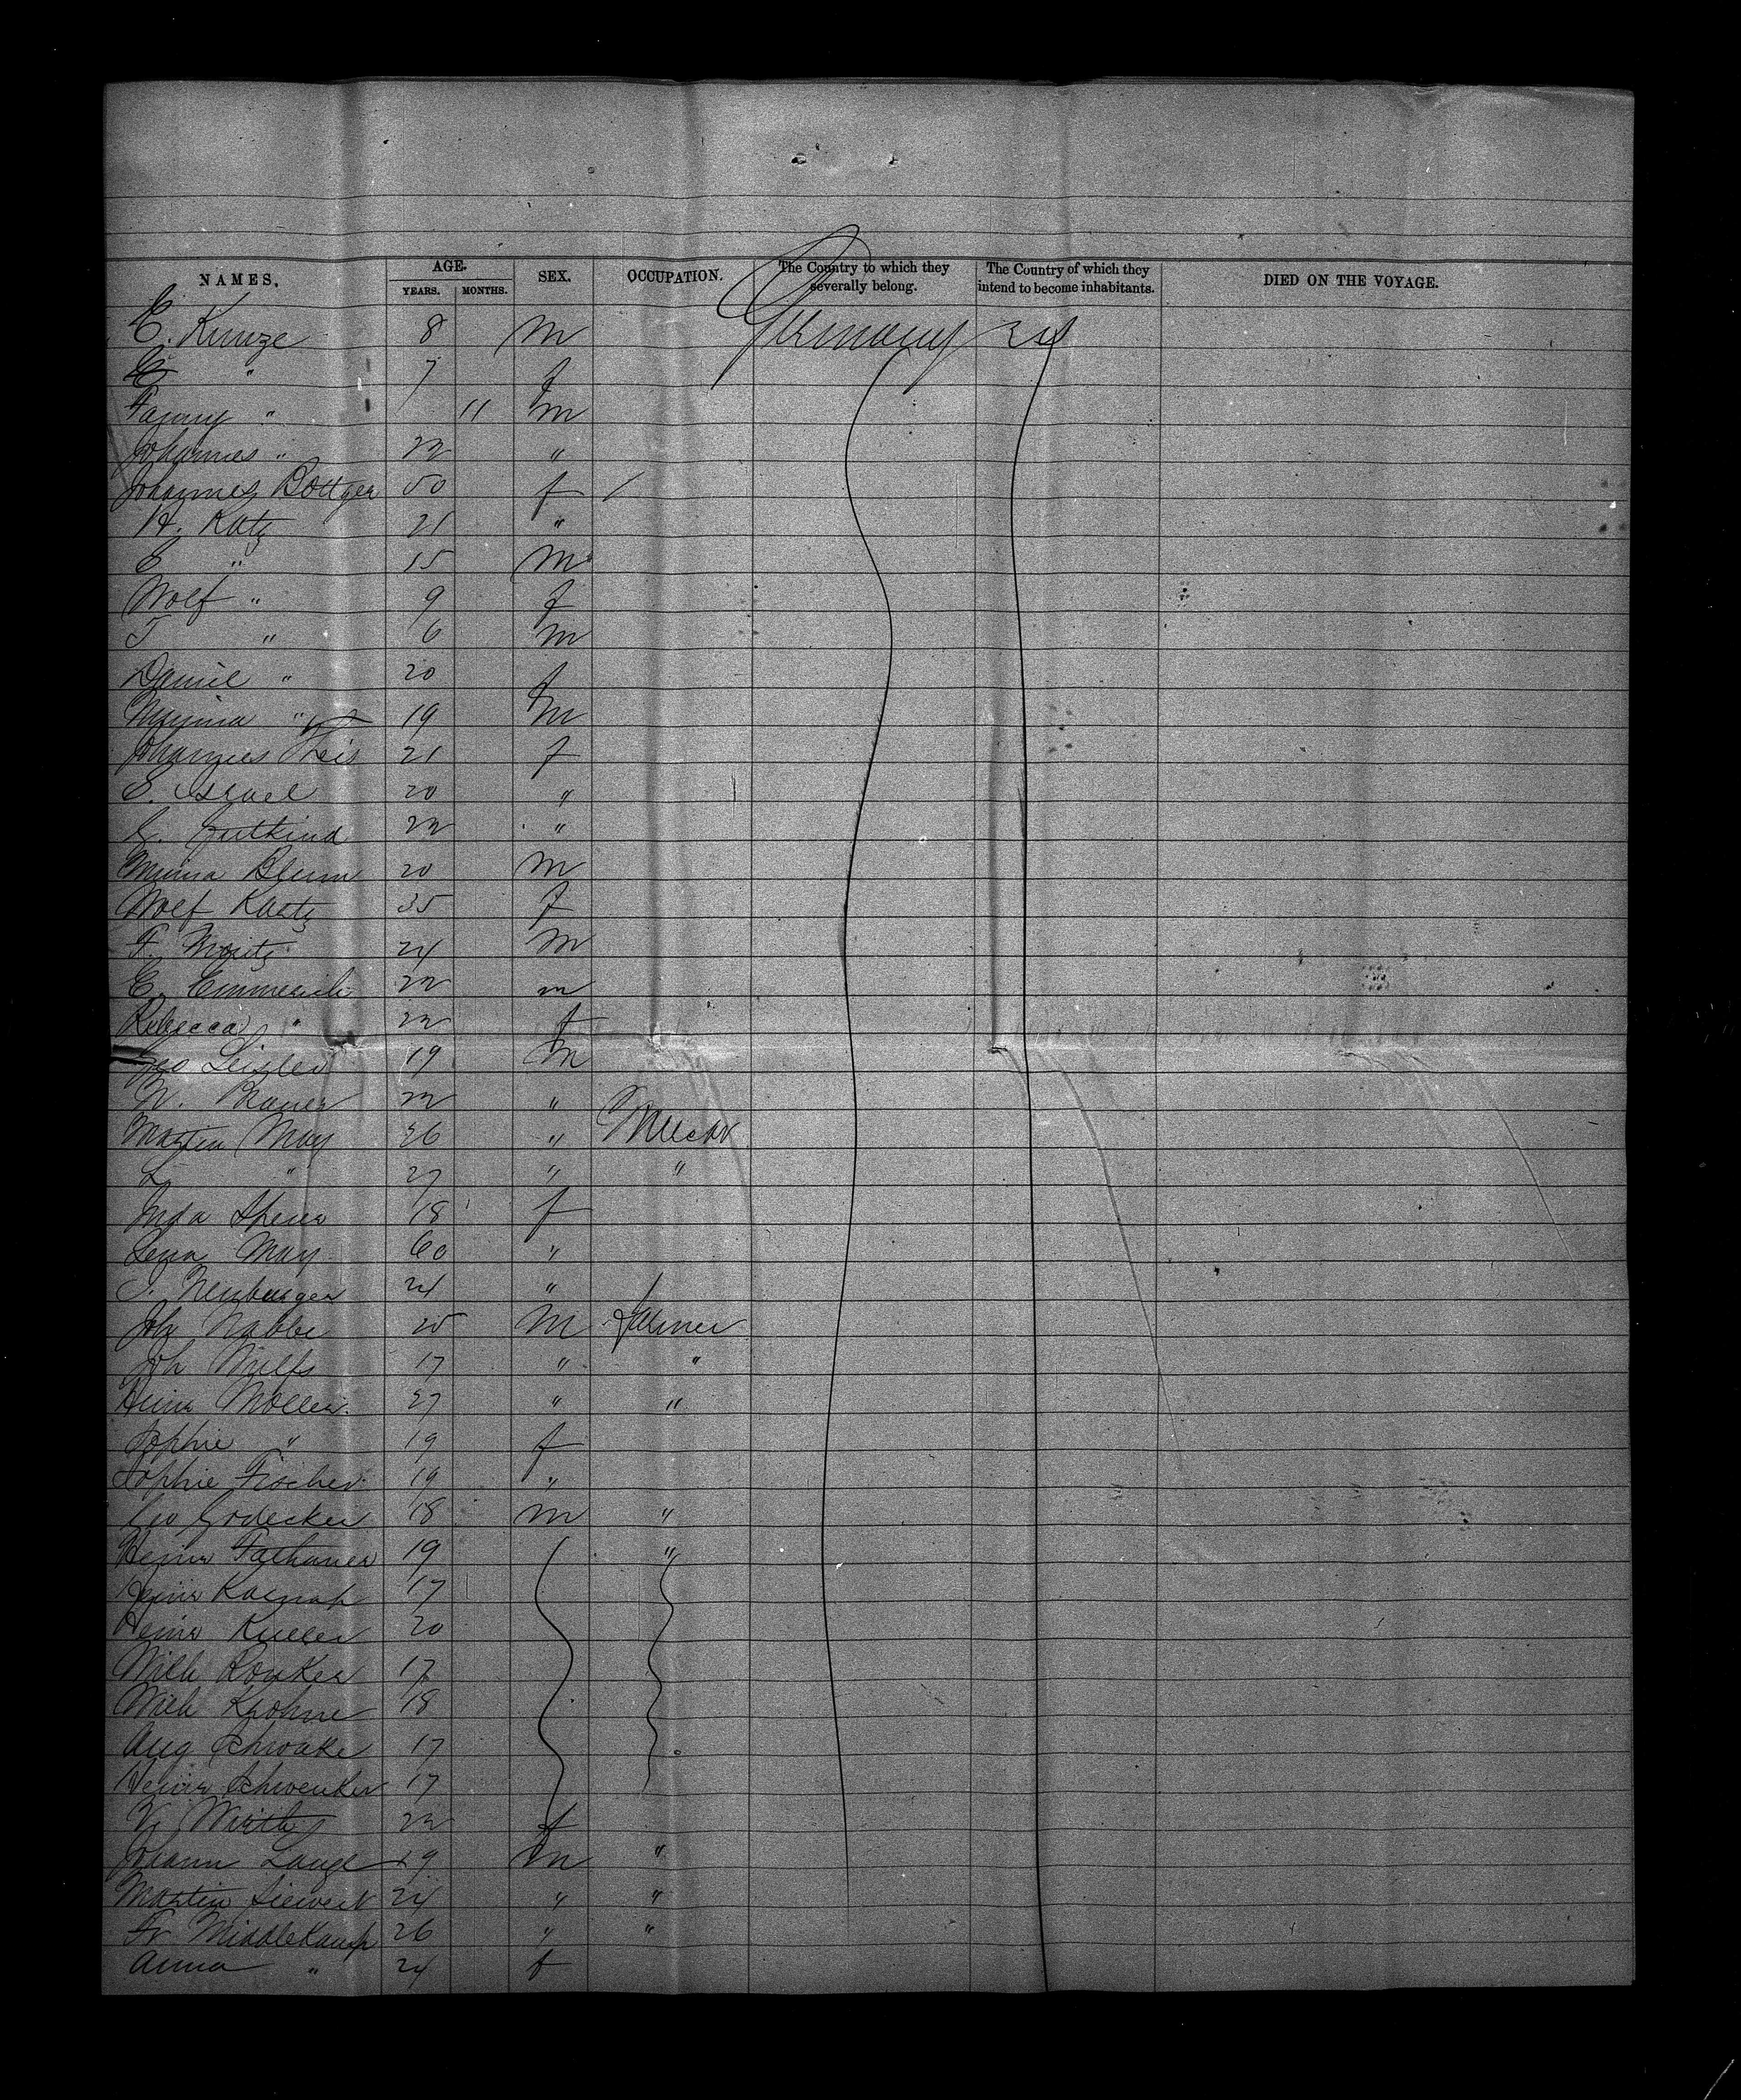 NAMES. AGE. YEARS. MONTHS. SEX. OCCUPATION. The Country to which they severally belong. The Country of which they intend to become inhabitants. DIED ON THE VOYAGE.
C. Kunze 8 m Germany
" 7 f
Fanny " 11 m
Johannes " 22 "
Johannes Bottger 50 f
H. Katz 21 "
E " 15 m
Wolf " 9 f
J " 6 m
" 20 f
" 19 m
Johannes 21 f
S. Israel 20 "
Gutkind 22 "
Minna Blum 20 m
Wolf Katz 35 f
F. 24 m
C. Emmerich 22 m
Rebecca " 22 f
Geo Leisler 19 m
22 "
Martin May 26 "
L " 27 " "
18 f
Lena May 60 "
24 "
Joh Nabbe 25 m Farmer
Joh 17 " "
Heinr Moller 27 " "
Sophie " 19 f
Sophie Fischer 19 "
Geo Godecker 18 m "
Heinr Fathauer 19 "
Heinr 17
Heinr 20
Wilh 17
Wilh Krohne 18
Aug Schwake 17
Heinr Schwenker 17
Wirth 22 f
Johann Lange 19 m "
Martin Siewert 24 " "
Fr Middlekamp 26 " "
Anna " 24 f